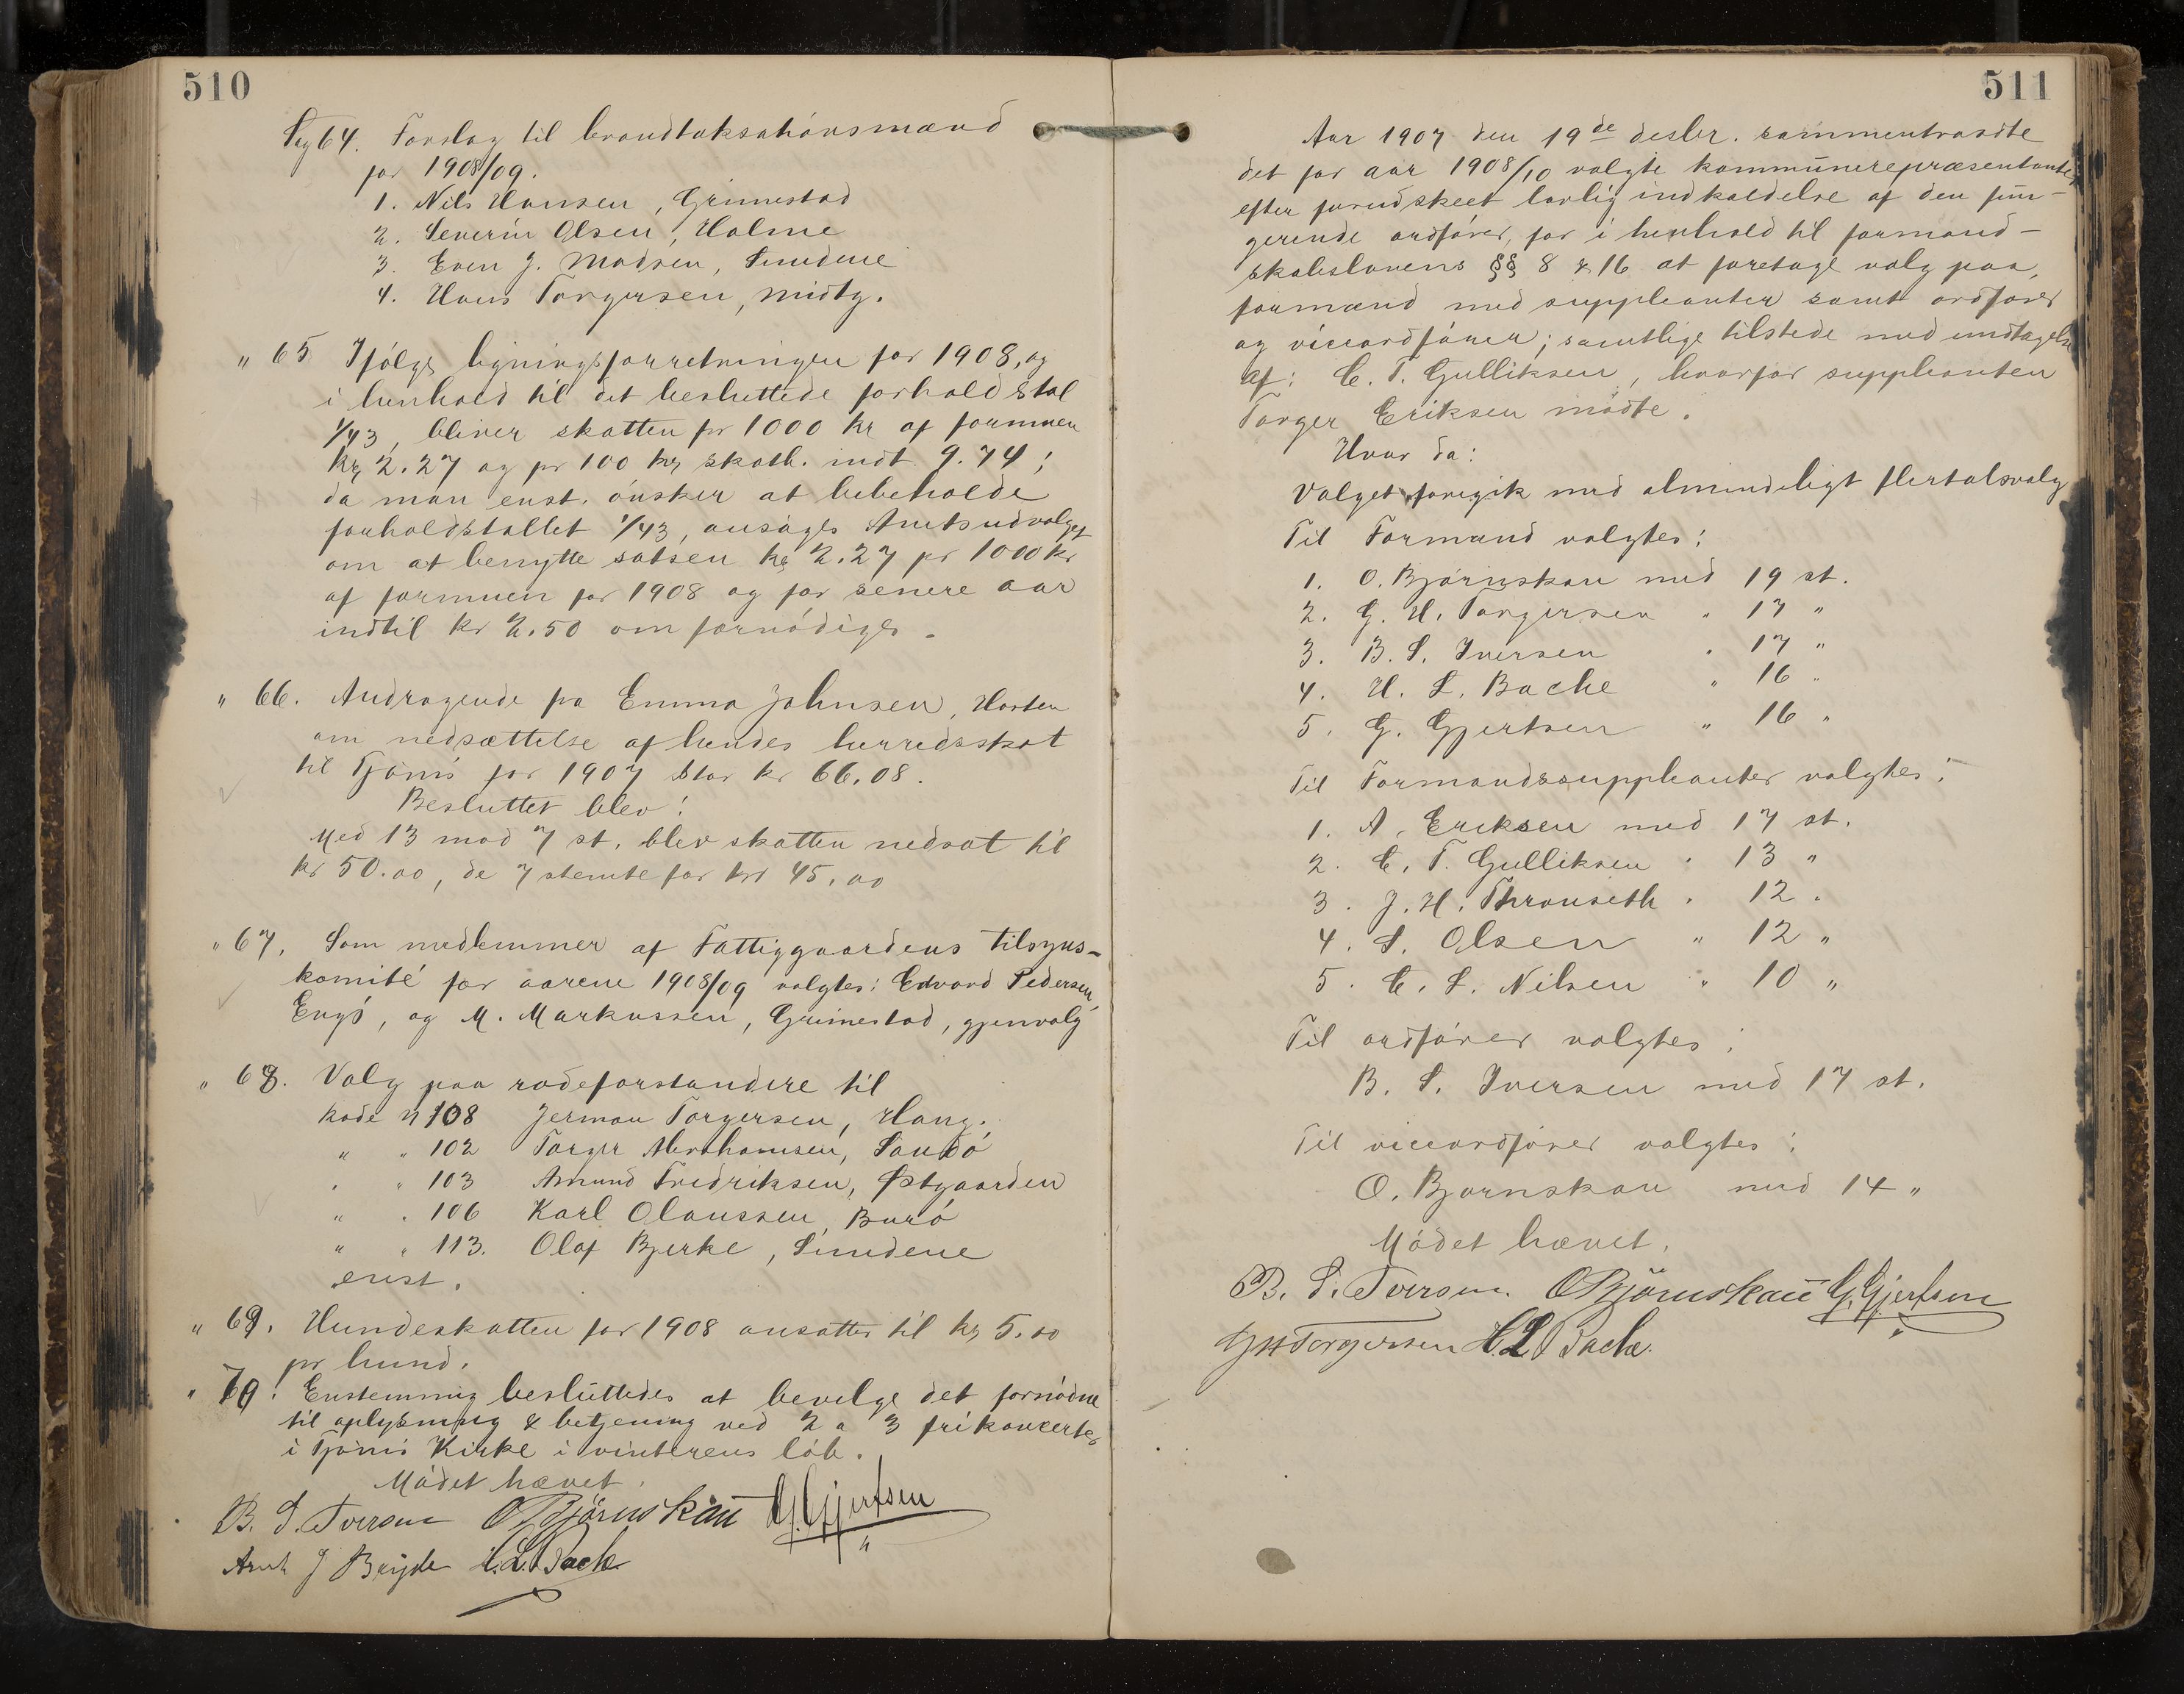 510
Sag 64. Forslag til brandtaksationsmænd
for 1908/09.
1. Nils Hansen, Grimestad
2. Severin Olsen, Holme
3. Even J. Madsen, Sundene
4. Hans Torgersen, Midtg.
" 65 Ifölge ligningsforretningen for 1908, og
i henhold til det besluttede forholdstal
1/43, bliver skatten pr 1000 kr af formuen
kr 2.27 og pr 100 kr skatb. indt 9.74;
da man enst. önsker at bibeholde
forholdstallet 1/43, ansöges Amtsudvalget
om at benytte satsen kr 2.27 pr 1000 kr
af formuen for 1908 og for senere aar
indtil kr 2.50 om fornödiges.
" 66. Andragende fra Emma Johnsen, Horten
om nedsættelse af hendes herredsskat
til Tjömö for 1907 stor kr 66.08.
Besluttet blev:
Med 13 mod 7 st. blev skatten nedsat til
kr 50.00, de 7 stemte for kr 45.00
" 67. Som medlemmer af Fattiggaardens tilsyns-
komité for aarene 1908/09 valgtes: Edvard Pedersen,
Engö, og M. Markussen, Grimestad, gjenvalg
" 68. Valg paa rodeforstandere til
Rode n 108 Jerman Torgersen, Haug.
" " 102 Torger Abrahamsen, Sandö
" " 103 Amund Fredriksen, Østgaarden
" " 106 Karl Olaussen, Burö
" " 113. Olaf Bjerke, Sundene
enst.
" 69. Hundeskatten for 1908 ansattes til kr 5.00
pr hund.
" 70. Enstemmig besluttedes at bevilge det fornödne
til oplysning & betjening ved 2 a 3 frikoncerter
i Tjömö Kirke i vinterens löb.
Mödet hævet.
B. S. Iversen O Björnskau G. Gjertsen
J Bryde H. L. Bache
511
Aar 1907 den 19de desbr. sammentraadte
det for aar 1908/10 valgte kommunerepræsentanter
efter forudskeet lovlig indkaldelse af den fun-
gerende ordförer, for i henhold til formand-
skabslovens §§ 8 & 16 at foretage valg paa,
formænd med suppleanter samt ordförer
og viceordförer; samtlige tilstede med undtagelse
af: C. T. Gulliksen, hvorfor suppleanten
Torger Eriksen mödte.
Hvor da:
Valget foregik med almindeligt flertalsvalg
Til Formænd valgtes:
1. O. Björnskau med 19 st.
2. G. H. Torgersen " 17 "
3. B. S. Iversen " 17 "
4. H. L. Bache " 16 "
5. G. Gjertsen " 16 "
Til Formandssuppleanter valgtes:
1. A. Eriksen med 17 st.
2. C. T. Gulliksen " 13 "
3. J. H. Thronseth " 12 "
4. S. Olsen " 12 "
5. C. L. Nilsen " 10 "
Til ordförer valgtes:
B. S. Iversen med 17 st.
Til viceordförer valgtes:
O. Bjornskau med 14 "
Mödet hævet.
B. S. Iversen. O Björnskau G. Gjertsen
GHTorgersen H. L. Bache.